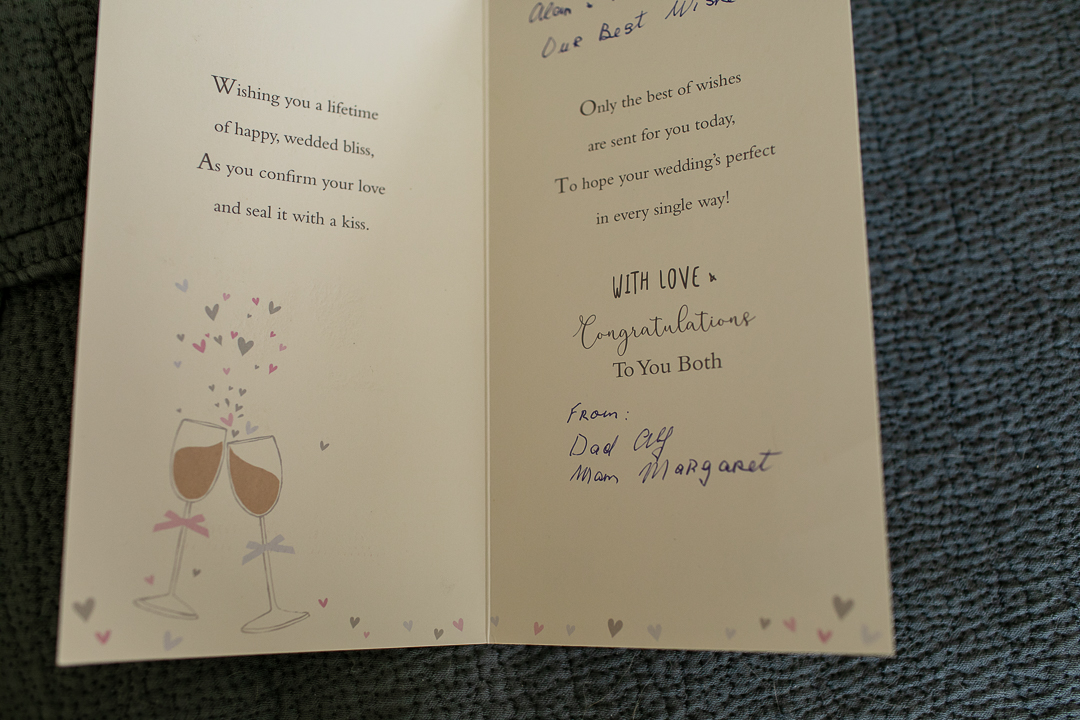 Wishing you a lifetime
of happy, wedded bliss,
As you confirm your love
and seal it with a kiss.
Our Best
Only the best of wishes
are sent for you today,
To hope your wedding's perfect
in every single way!
WITH LOVE &
Congratulations
To You Both
From:
Dad
Mam Margaret